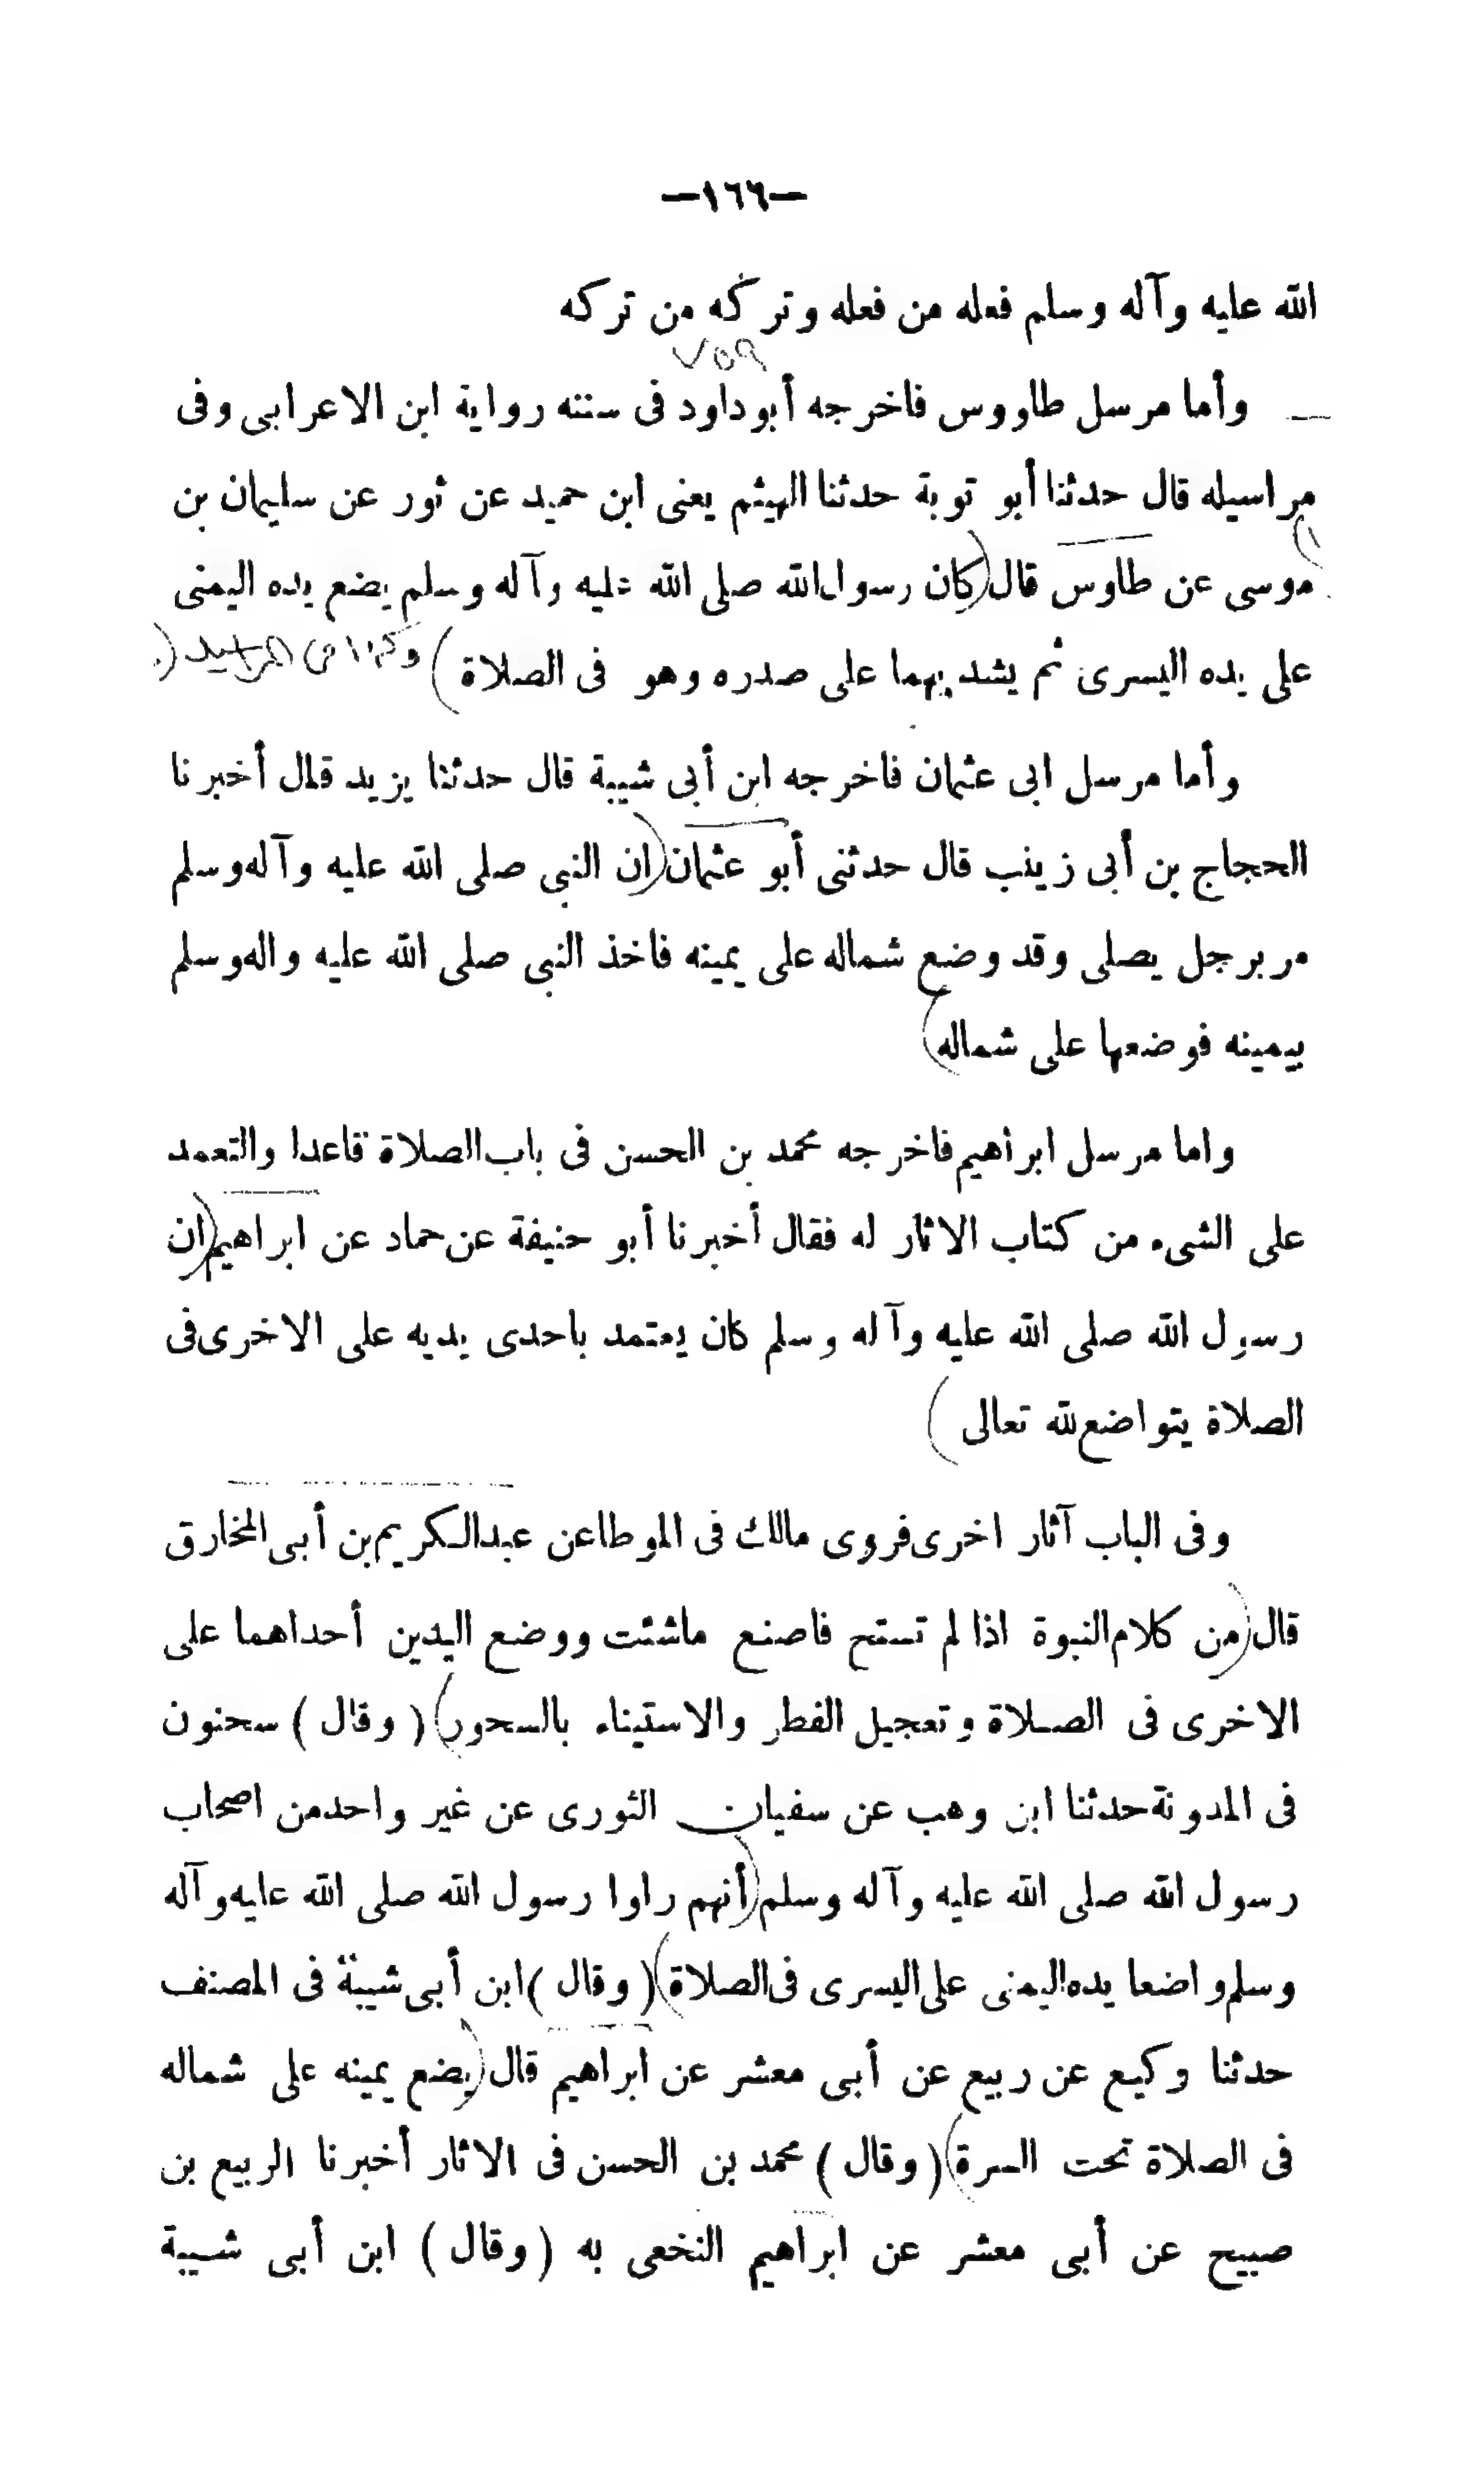 —١٦٦—
الله عليه وآله وسلم فعله من فعله وتركه من تركه
٧٥٩
وأما مرسل طاووس فاخرجه أبو داود فى سننه رواية ابن الاعرابى وفى
مراسيله قال حدثنا أبو توبة حدثنا الهيثم يعنى ابن حميد عن ثور عن سليمان بن
موسى عن طاوس قال (كان رسول الله صلى الله عليه وآله وسلم يضع يده اليمنى
على يده اليسرى ثم يشد بهما على صدره وهو فى الصلاة)
وأما مرسل ابى عثمان فاخرجه ابن أبى شيبة قال حدثنا يزيد قال أخبرنا
الحجاج بن أبى زينب قال حدثنى أبو عثمان (ان النبى صلى الله عليه وآله وسلم
مر برجل يصلى وقد وضع شماله على يمينه فاخذ النبى صلى الله عليه واله وسلم
بيمينه فوضعها على شماله)
واما مرسل ابراهيم فاخرجه محمد بن الحسن فى باب الصلاة قاعدا والتعمد
على الشىء من كتاب الاثار له فقال أخبرنا أبو حنيفة عن حماد عن ابراهيم (ان
رسول الله صلى الله عليه وآله وسلم كان يعتمد باحدى يديه على الاخرى فى
الصلاة يتواضع لله تعالى)
وفى الباب آثار اخرى فروى مالك فى الموطا عن عبد الكريم بن أبى المخارق
قال (من كلام النبوة اذا لم تستح فاصنع ماشئت ووضع اليدين أحداهما على
الاخرى فى الصلاة وتعجيل الفطر والاستيناء بالسحور) (وقال) سحنون
فى المدونة حدثنا ابن وهب عن سفيان الثورى عن غير واحد من اصحاب
رسول الله صلى الله عليه وآله وسلم (أنهم راوا رسول الله صلى الله عليه وآله
وسلم واضعا يده اليمنى على اليسرى فى الصلاة) (وقال) ابن أبى شيبة فى المصنف
حدثنا وكيع عن ربيع عن أبى معشر عن ابراهيم قال (يضع يمينه على شماله
فى الصلاة تحت السرة) (وقال) محمد بن الحسن فى الاثار أخبرنا الربيع بن
صبيح عن أبى معشر عن ابراهيم النخعى به (وقال) ابن أبى شيبة